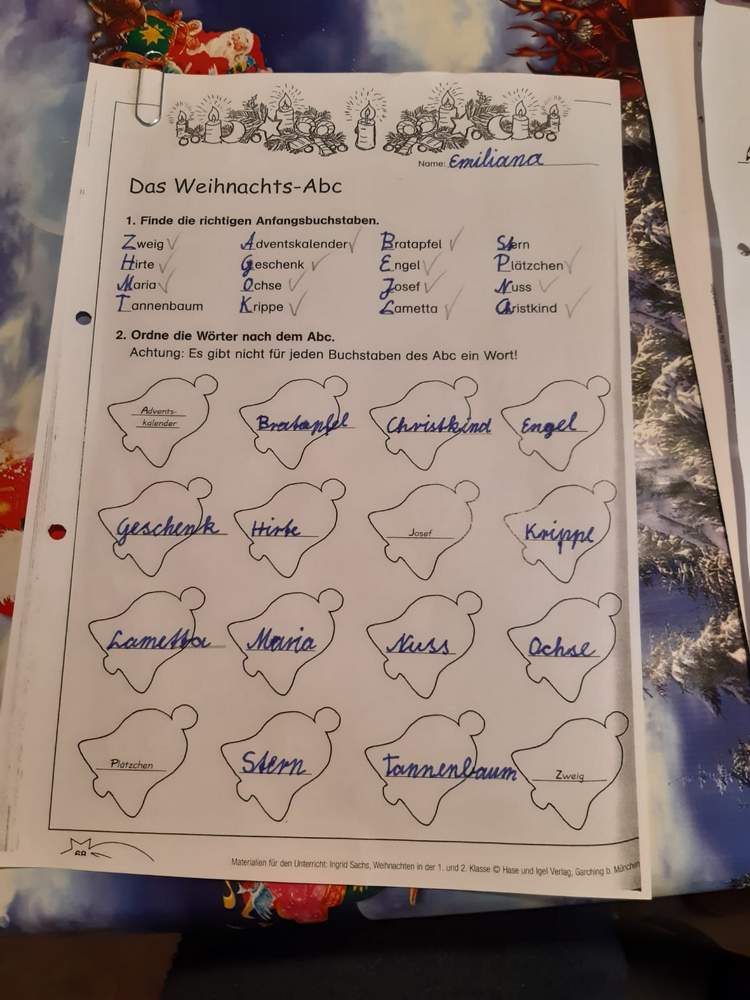 Name: Emiliana
Das Weihnachts-Abc
1. Finde die richtigen Anfangsbuchstaben.
Zweig Adventskalender Bratapfel Stern
Hirte Geschenk Engel Plätzchen
Maria Ochse Josef Nuss
Tannenbaum Krippe Lametta Christkind
2. Ordne die Wörter nach dem Abc.
Achtung: Es gibt nicht für jeden Buchstaben des Abc ein Wort!
Advents-
kalender
Bratapfel Christkind Engel
Geschenk Hirte Josef Krippe
Lametta Maria Nuss Ochse
Plätzchen Stern Tannenbaum Zweig
68
Materialien für den Unterricht: Ingrid Sachs, Weihnachten in der 1. und 2. Klasse © Hase und Igel Verlag, Garching b. München